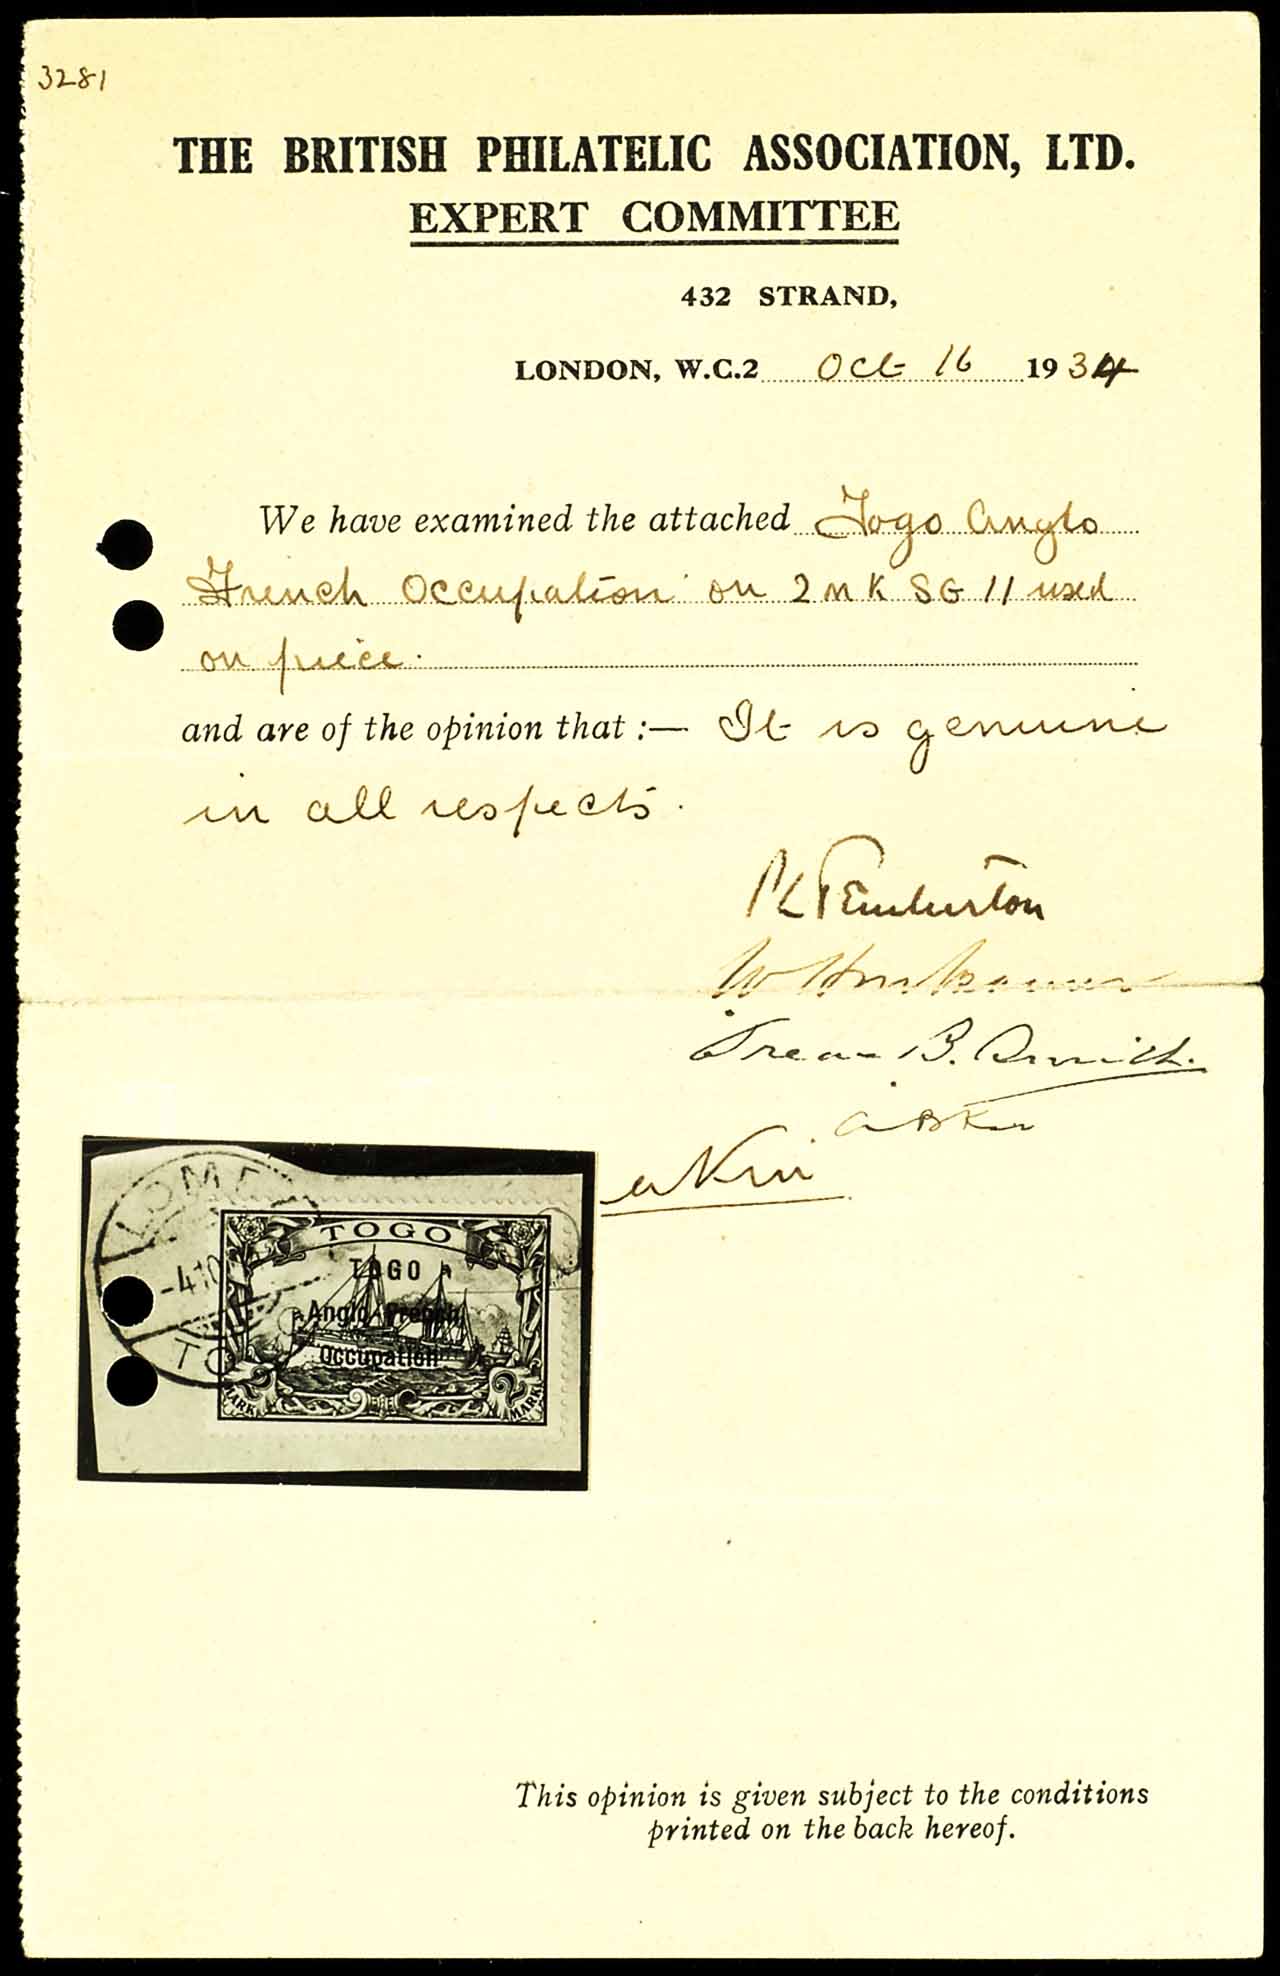 3281
THE BRITISH PHILATELIC ASSOCIATION, LTD.
EXPERT COMMITTEE
432 STRAND,
LONDON, W.C.2 Oct 16 1934
We have examined the attached Togo Anglo
French Occupation on 2 mk SG 11 used
on piece.
and are of the opinion that :— It is genuine
in all respects.
P L Pemberton
B. Smith.
LOME
-4.10
TO
TOGO
TOGO
Anglo-French
Occupation
2 MARK 2 MARK
This opinion is given subject to the conditions
printed on the back hereof.